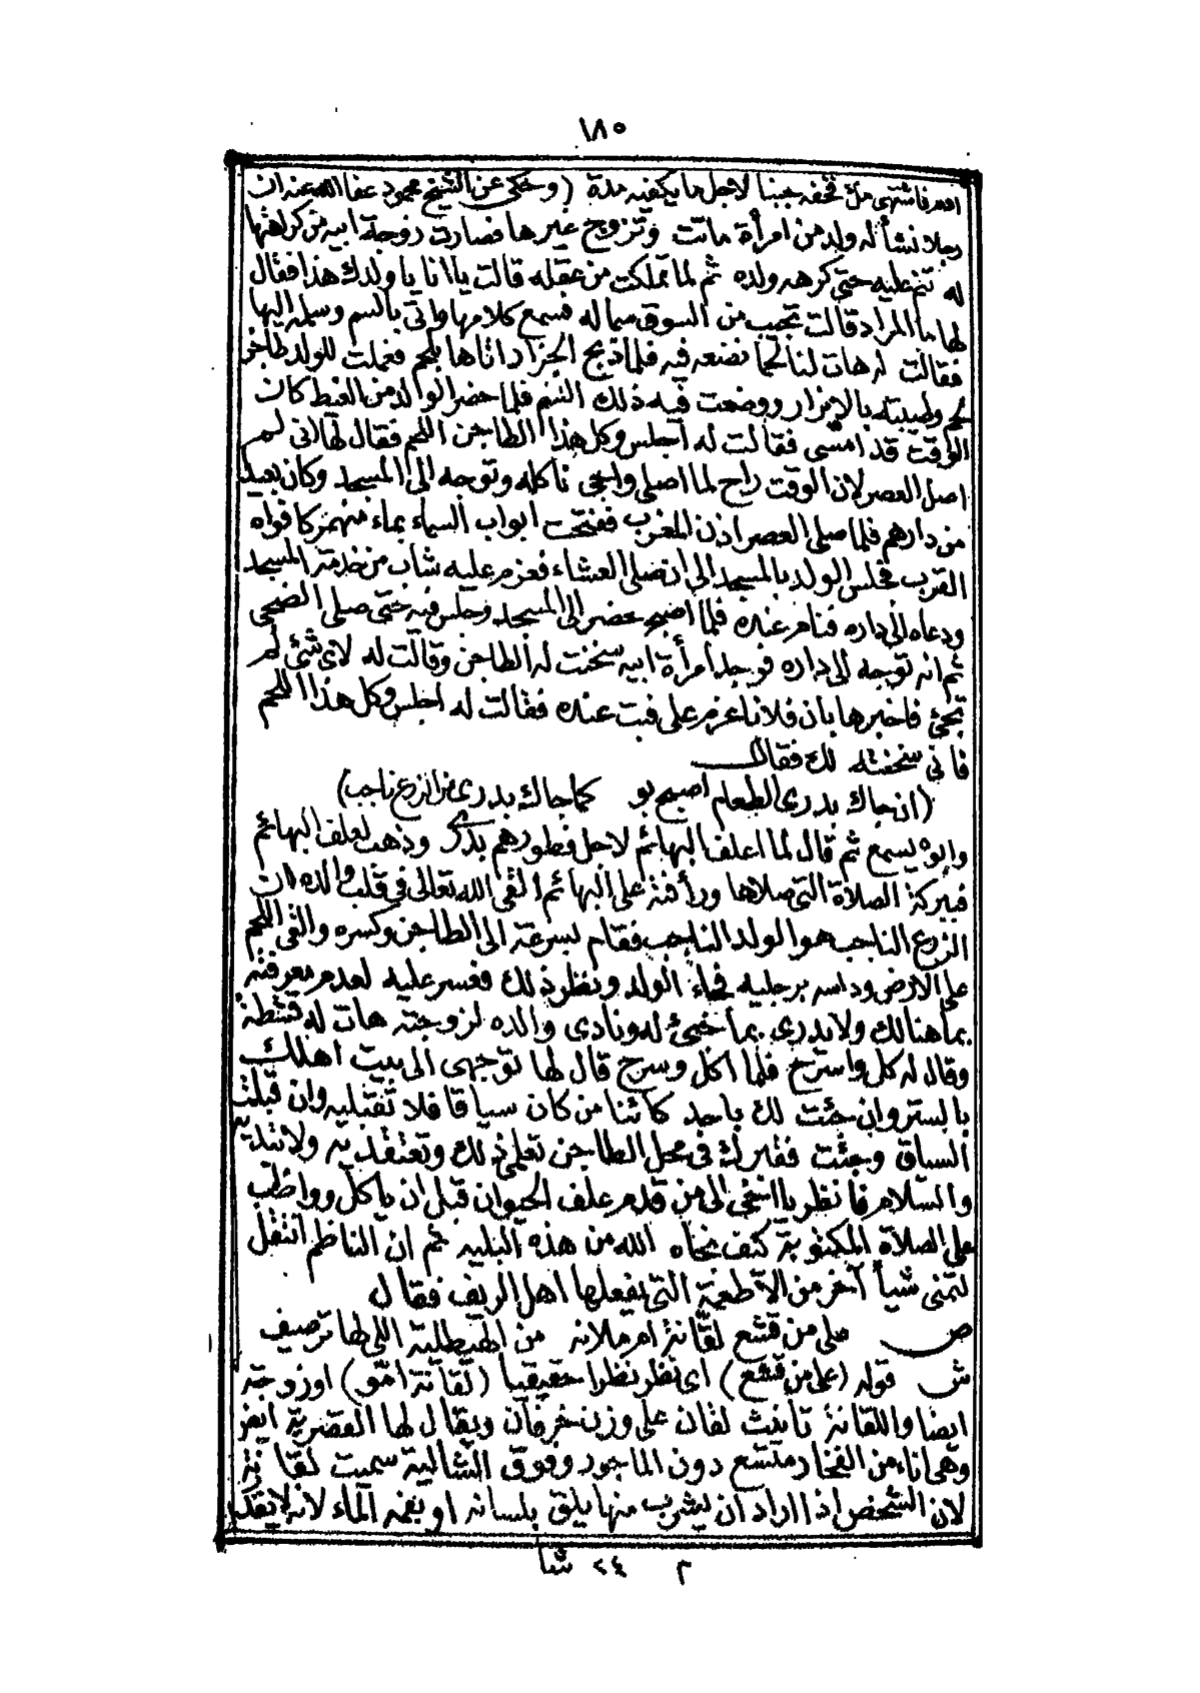 ١٨٥
ادم فاشتهى ملئ قحفه جبنا لاجل ما يكفيه مدة (وحكى عن الشيخ محمود عفا الله عنه ان
رجلا نشأ له ولد من امرأة ماتت وتزوج غيرها فصارت زوجة ابيه من كراهتها
له تنم عليه حتى كره ولده ثم لما تملكت من عقله قالت يا انا يا ولدك هذا فقال
لها ما المراد قالت تجيب من السوق سما له فسمع كلامها واتى بالسم وسلمه اليها
فقالت له هات لنا لحما نضعه فيه فلما ذبح الجزار اتاها بلحم فعملت للولد طاجن
لحم وطيبته بالابزار ووضعت فيه ذلك السم فلما حضر الولد من الغيط كان
الوقت قد امسى فقالت له اجلس وكل هذا الطاجن اللحم فقال لها انى لم
اصل العصر لان الوقت راح لما اصلى واجى نا كله وتوجه الى المسجد وكان بعيد
من دارهم فلما صلى العصر اذن المغرب ففتحت ابواب السماء بماء منهمر كافواه
القرب فجلس الولد بالمسجد الى ان صلى العشاء فعزم عليه شاب من خدمة المسجد
ودعاه الى داره فنام عنده فلما اصبح حضر الى المسجد وجلس فيه حتى صلى الضحى
ثم انه توجه الى داره فوجد امرأة ابيه سخنت له الطاجن وقالت له لاى شئ لم
تجئ فاخبرها بان فلانا عزم على فبت عنده فقالت له اجلس وكل هذا اللحم
فانى سخنته لك فقال
(ان جاك بدرى الطعام اصبح بو كما جاك بدرى من الزرع ناجب)
وابوه يسمع ثم قال لما اعلف البهائم لاجل فطورهم بدرى وذهب لعلف البهائم
فببركة الصلاة التى صلاها ورأفته على البهائم القى الله تعالى فى قلب والده ان
الزرع الناجب هو الولد الناجب فقام بسرعة الى الطاجن وكسره والقى اللحم
على الارض وداسه برجليه فجاء الولد ونظر ذلك فعسر عليه لعدم معرفته
بما هنالك ولا يدرى بما خبئ له ونادى والده لزوجته هات له قشطة
وقال له كل واسرح فلما اكل وسرح قال لها توجهى الى بيت اهلك
بالستر وان جئت لك باحد كائنا من كان سياقا فلا تقبليه وان قبلت
السياق وجئت فقبرك فى محل الطاجن تعلمى ذلك وتعتقديه ولا تنديه
والسلام فانظر يا اخى الى من قدم علف الحيوان قبل ان ياكل وواظب
على الصلاة المكتوبة كيف نجاه الله من هذه البلية ثم ان الناظم انتقل
لتمنى شيأ آخر من الاطعمة التى يفعلها اهل الريف فقال
ص على من قشع لقانة ام ملانه من الهيطلية اللى لها ترصيف
ش قوله (على من قشع) اى نظر نظرا حقيقيا (لقانة امو) او زوجته
ايضا واللقانة تأنيث لقان على وزن خرفان ويقال لها القصرية ايضا
وهى اناء من الفخار متسع دون الماجور وفوق الشالية سميت لقانة
لان الشخص اذا اراد ان يشرب منها يلق بلسانه او بفمه الماء لانه لا يقدر
م ٢٤ شا